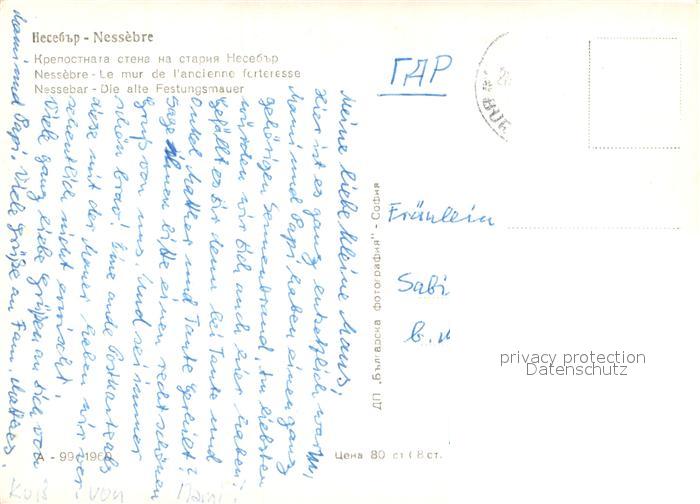 Несебър - Nessèbre
Крепостната стена на стария Несебър
Nessèbre - Le mur de l'ancienne forteresse
Nessebar - Die alte Festungsmauer
ГДР
Meine liebe kleine Maus,
Hier ist es ganz entsetzlich warm,
Mami und Papi haben einen ganz
gehörigen Sonnenbrand. Am liebsten
würden wir Dich auch hier haben!
Gefällt es Dir denn bei Tante und
Onkel Matthes und Tante
Sage ihnen bitte einen recht schönen
Gruß von uns. Und sei immer
schön brav! Eine ande Postkarte als
diese mit der Mauer haben wir
nicht erwischt.
Viele ganz liebe Grüße an Dich von
Mami und Papi. Viele Grüße an Fam. Matthes.
Kuß von Mami!
ДП „Българска фотография" - София
Fräulein
Sabi
privacy protection
Datenschutz
А - 99 - 1960
Цена 80 ст (8 ст.